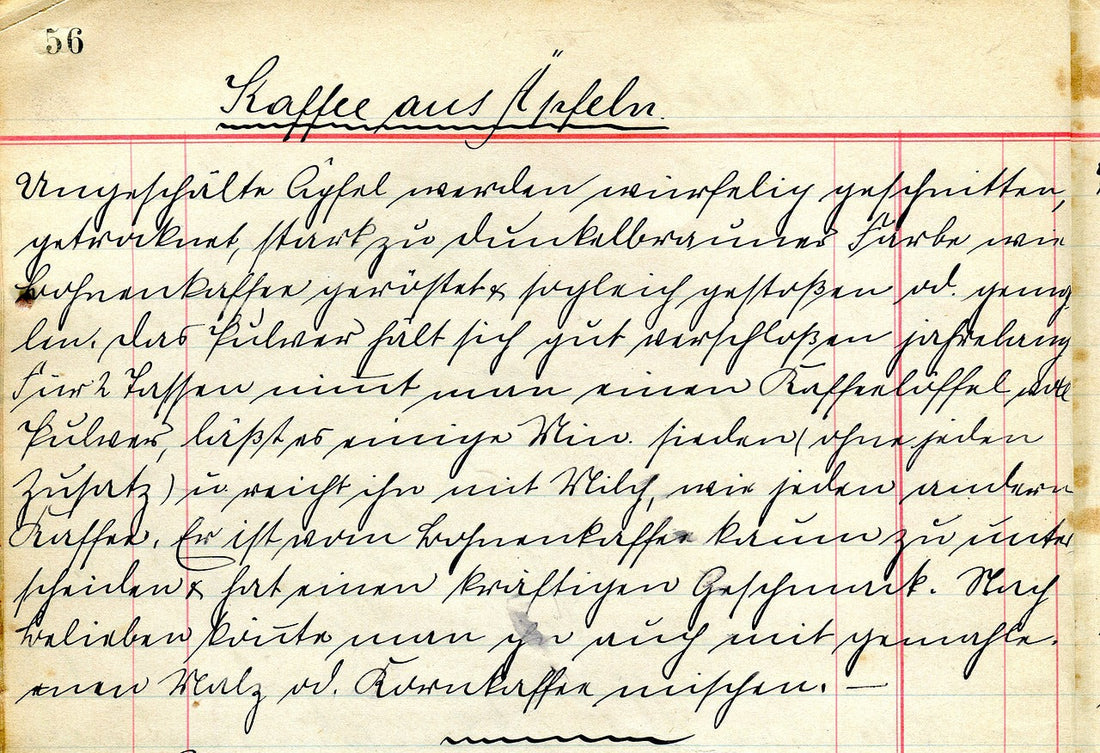 56
Kaffee aus Äpfeln.
Ungeschälte Äpfel werden würfelig geschnitten,
getrocknet, stark zu dunkelbrauner Farbe wie
Bohnenkaffee geröstet & sogleich gestoßen od. gemah
len. Das Pulver hält sich gut verschloßen jahrelang
Für 2 Tassen nim̅t man einen Kaffeelöffel voll
Pulver, läßt es einige Min. sieden (ohne jeden
Zusatz) u reicht ihn mit Milch, wie jeden andern
Kaffee. Er ist vom Bohnenkaffee kaum zu unter
scheiden & hat einen kräftigen Geschmack. Nach
Belieben kön̅te man ihn auch mit gemahle-
nen Malz od. Kornkaffee mischen. —